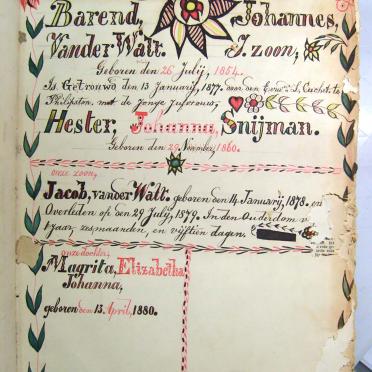 Barend, Johannes,
Vander Walt. J. zoon,
Geboren den 26 Julij, 1854.
Is Getrouwd den 15 Januarij, 1877. door den Eerw: L. Cachet. te
Philipston. met de Jonge Jufvrouw,
Hester Johanna, Snijman.
Geboren den 29 November, 1860.
onze zoon,
Jacob, vander Walt. geboren den 14 Januarij, 1878. en
Overleden op den 29 Julij, 1879. In den Ouderdom v
1 jaar, zes maanden, en vijftien dagen.
onze dochter,
Magrita, Elizabetha,
Johanna,
geboren den 13 April, 1880.